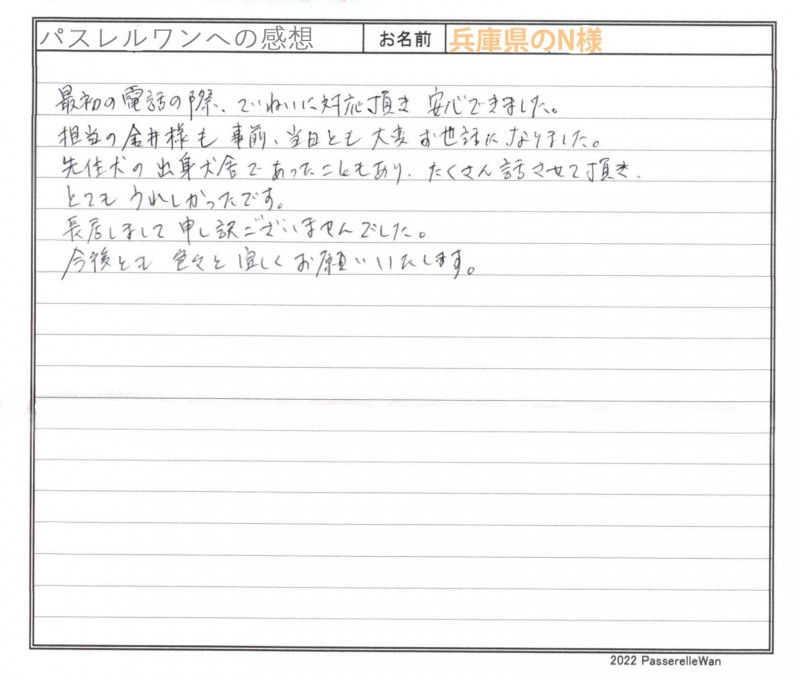 パスレルワンへの感想 お名前 兵庫県のN様
最初の電話の際、ていねいに対応頂き 安心できました。
担当の金井様も 事前、当日とも 大変 お世話になりました。
先住犬の出身犬舎であったこともあり、たくさん話させて頂き、
とても うれしかったです。
長居しまして 申し訳ございませんでした。
今後とも 色々と 宜しく お願いいたします。
2022 PasserelleWan